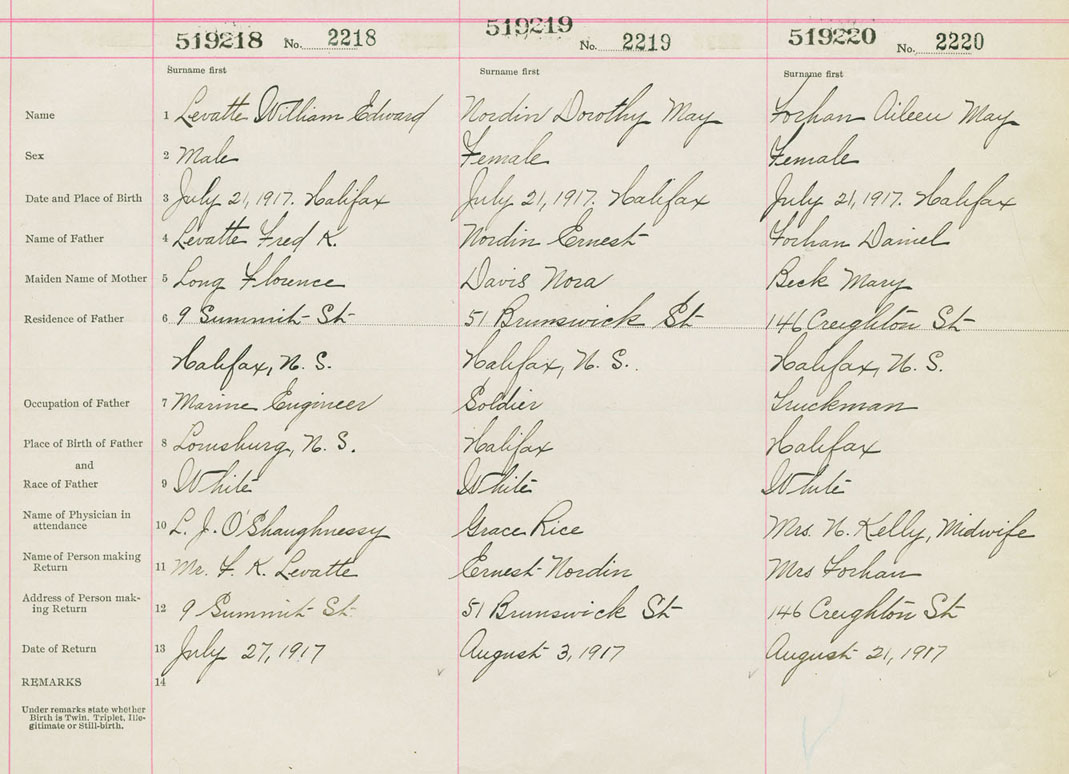 519218 No. 2218 519219 No. 2219 519220 No. 2220
Surname first Surname first Surname first
Name 1 Levatte William Edward Nordin Dorothy May Forhan Aileen May
Sex 2 Male Female Female
Date and Place of Birth 3 July 21, 1917. Halifax July 21, 1917. Halifax July 21, 1917. Halifax
Name of Father 4 Levatte Fred K. Nordin Ernest Forhan Daniel
Maiden Name of Mother 5 Long Florence Davis Nora Beck Mary
Residence of Father 6 9 Summit St 51 Brunswick St 146 Creighton St
Halifax, N. S. Halifax, N. S. Halifax, N. S.
Occupation of Father 7 Marine Engineer Soldier Truckman
Place of Birth of Father 8 Louisburg, N. S. Halifax Halifax
and
Race of Father 9 White White White
Name of Physician in
attendance 10 L. J. O'Shaughnessy Grace Rice Mrs. N. Kelly, Midwife
Name of Person making
Return 11 Mr. F. K. Levatte Ernest Nordin Mrs Forhan
Address of Person mak-
ing Return 12 9 Summit St. 51 Brunswick St 146 Creighton St
Date of Return 13 July 27, 1917 August 3, 1917 August 21, 1917
REMARKS 14
Under remarks state whether
Birth is Twin. Triplet, Ille-
gitimate or Still-birth.